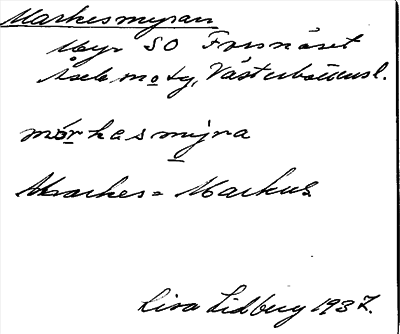 Markesmyran
Myr SO Fresnäset
Åsele m o ty, Västerbottensl.
márkasmỳra
Markes = Markus
Lisa Lidberg 1937.